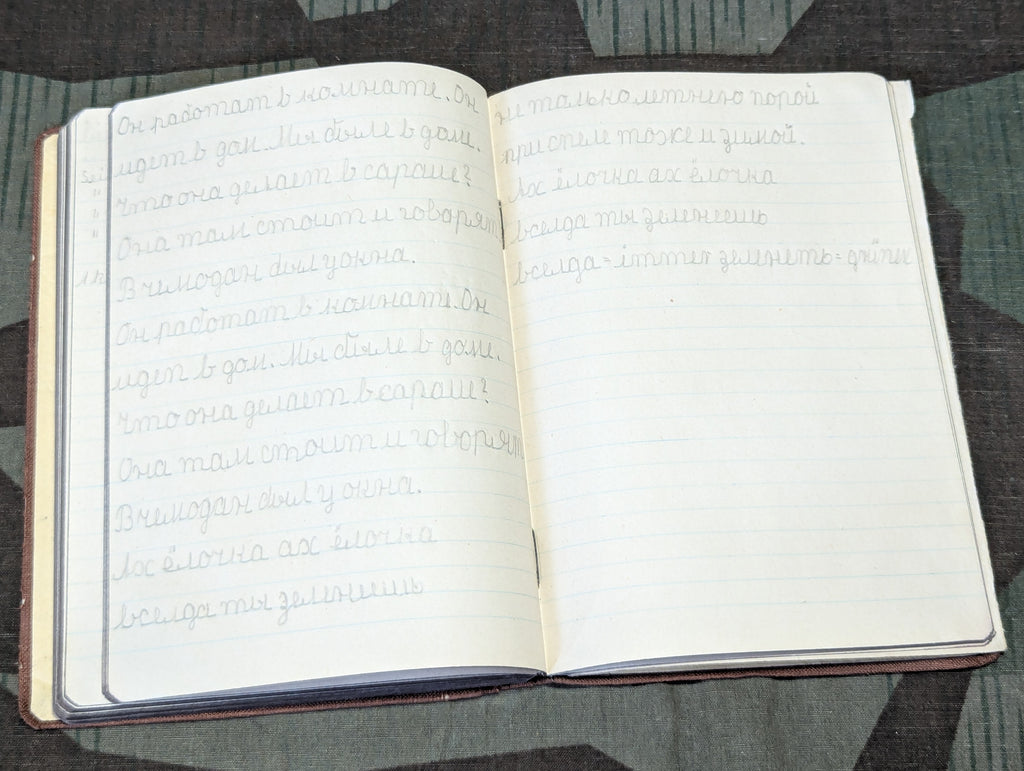 Он работат в комнате. Он
идет в дом. Мы быле в доме.
Что она делает в сараше?
Она там стоит и говорят
Вчемодан был у окна.
Он работат в комнате. Он
идет в дом. Мы быле в доме.
Что она делает в сараше?
Она там стоит и говорят
Вчемодан был у окна.
Ах ёлочка ах ёлочка
вселда ты зеленеешь
не только летнею порой
приспеле тоже и зимой.
Ах ёлочка ах ёлочка
вселда ты зеленеешь
вселда = immer зеленеть = grünen